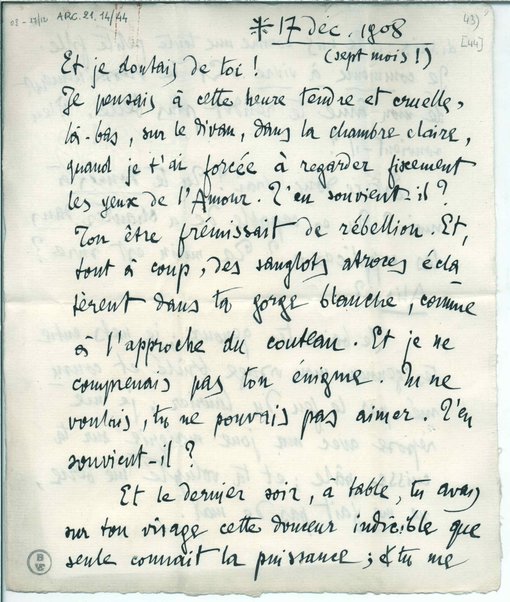 08-12/17 ARC.21.14/44
43)
[44]
* 17 déc. 1908
(sept mois!)
Et je doutais de toi!
Je pensais à cette heure tendre et cruelle,
là-bas, sur le divan, dans la chambre claire,
quand je t'ai forcée à regarder fixement
les yeux de l'Amour. T'en souvient-il?
Ton être frémissait de rébellion. Et,
tout à coup, des sanglots atroces écla
tèrent dans ta gorge blanche, comme
à l'approche du couteau. Et je ne
comprenais pas ton énigme. Tu ne
voulais, tu ne pouvais pas aimer. T'en
souvient-il?
Et le dernier soir, à table, tu avais
sur ton visage cette douceur indicible que
seule connaît la puissance; & tu me